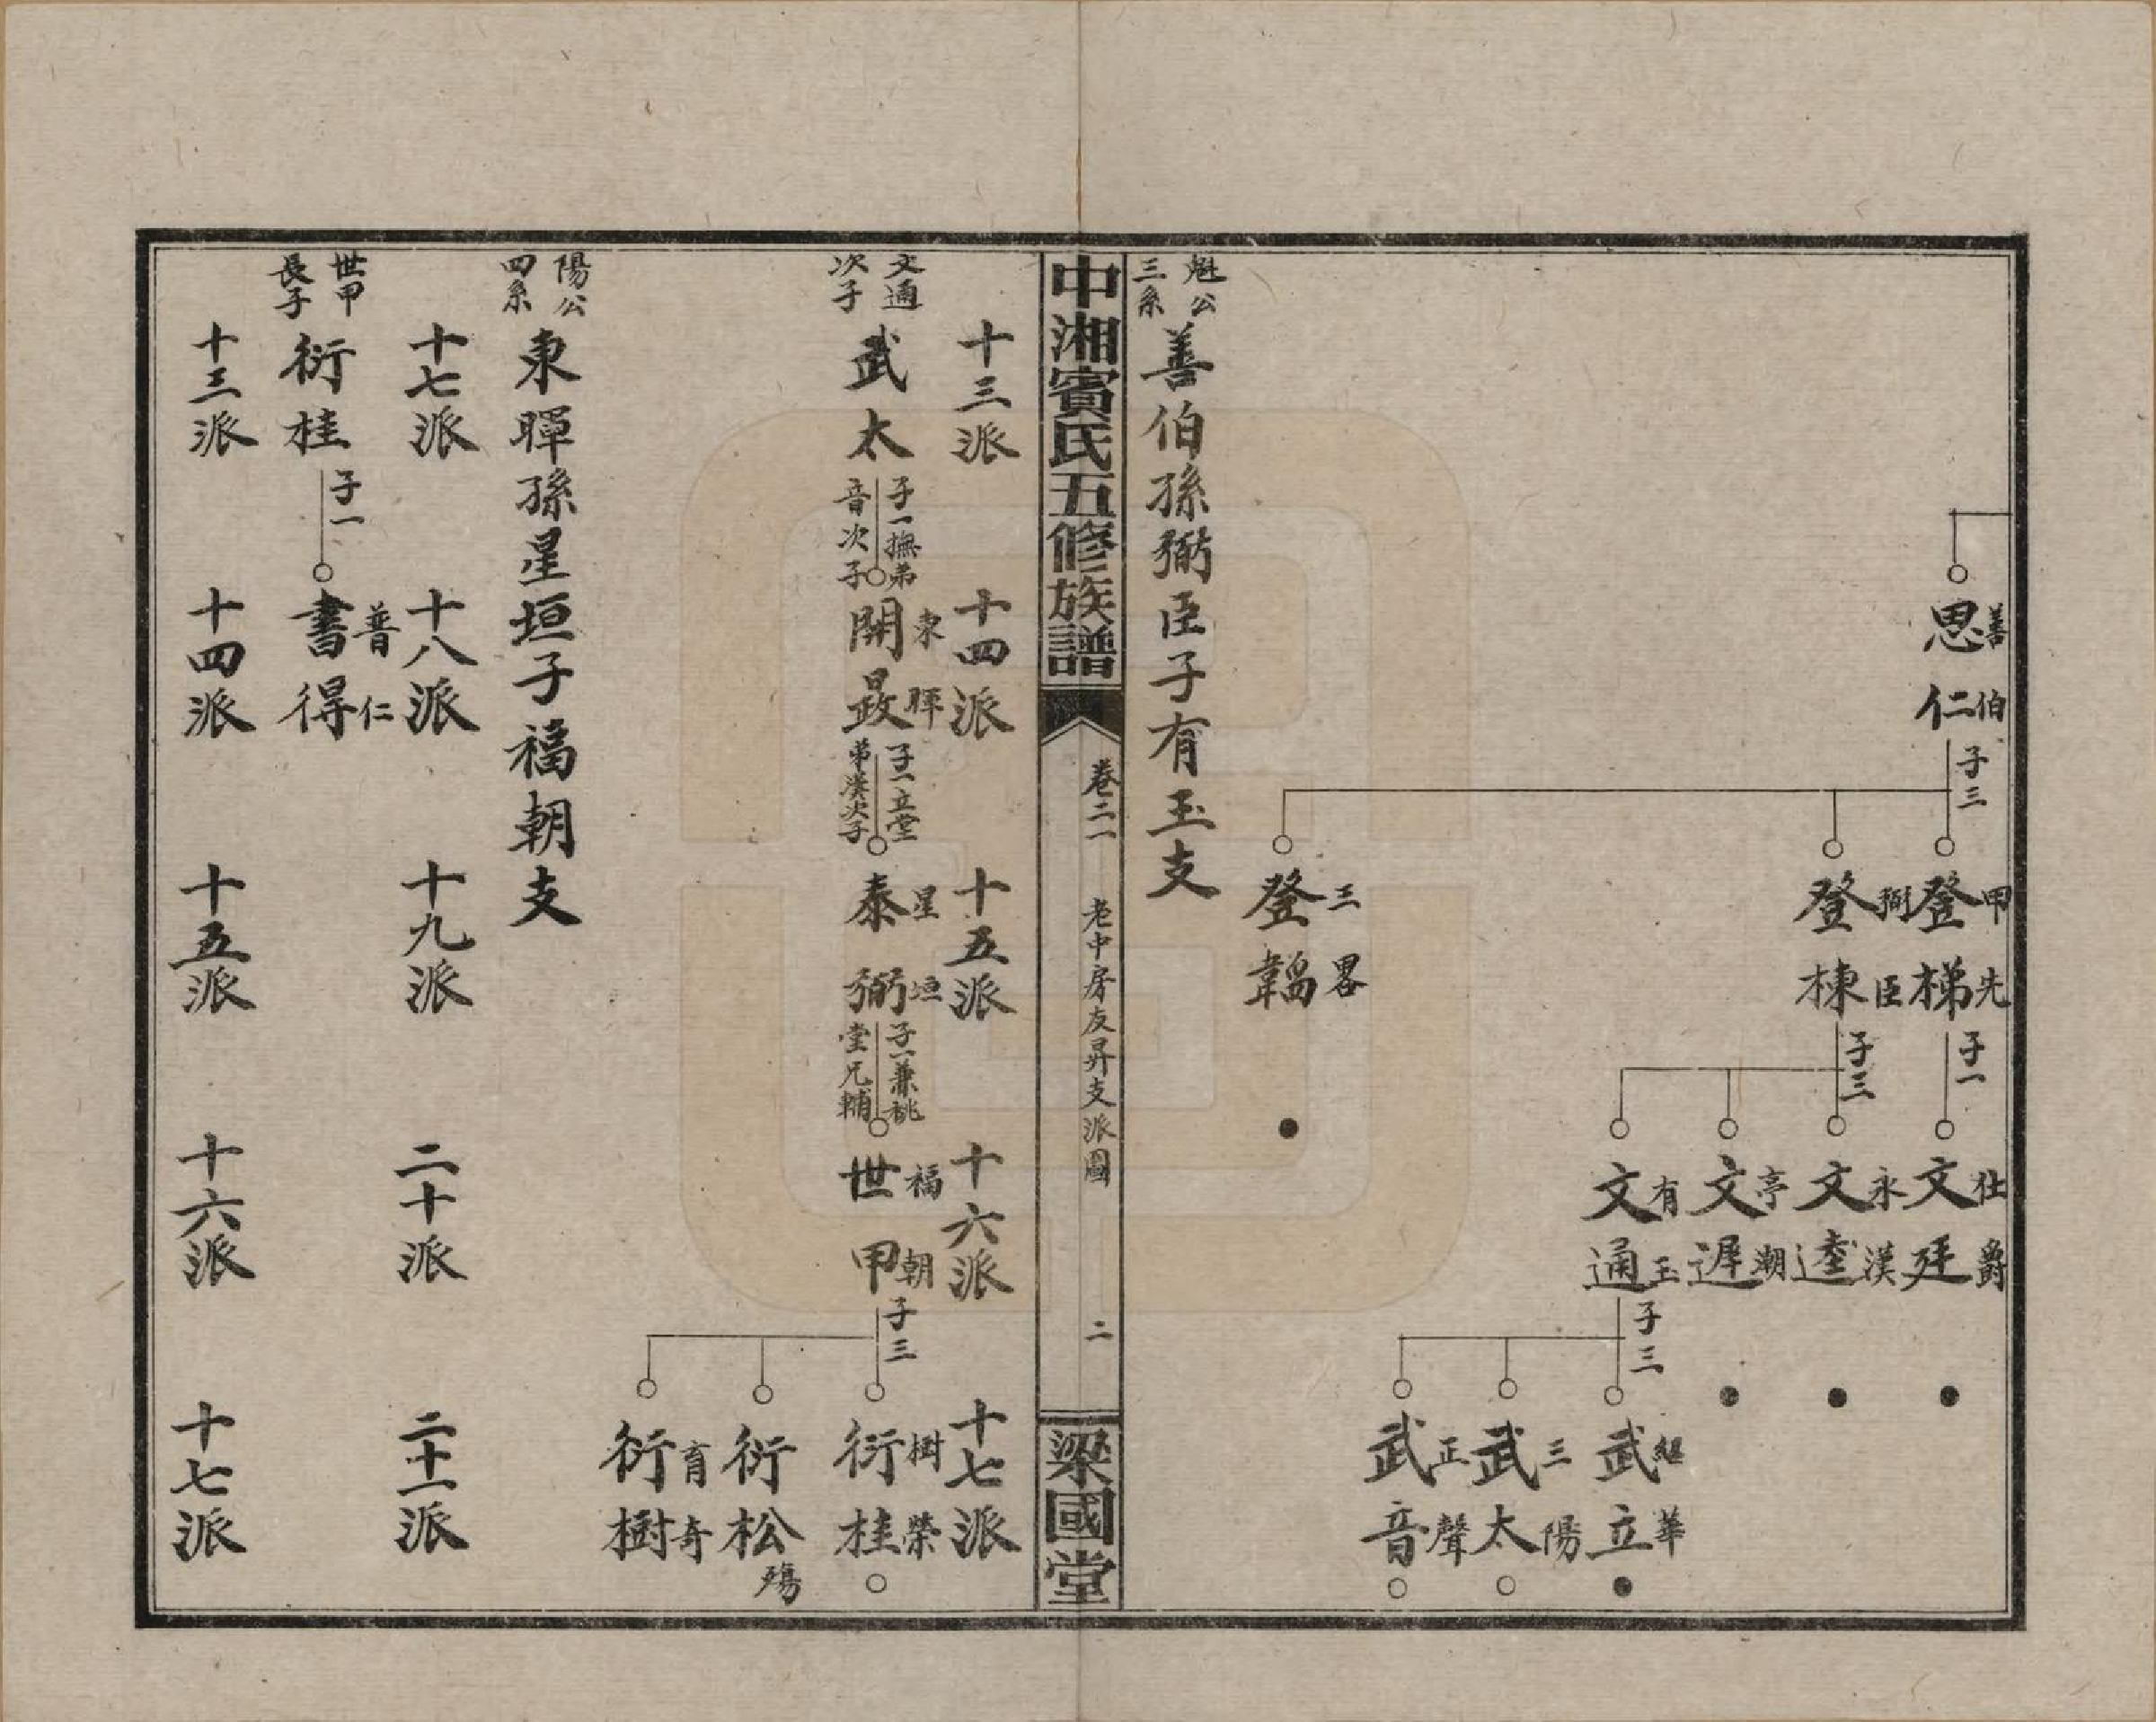 思仁 善伯 子三
登梯 甲先 子一
文廷 仕爵
登棟 弼臣 子三
文逵 永漢
文遲 亭潮
文通 有玉 子三
武立 繼華
武太 三陽
武音 正聲
登韜 三畧
魁公三系
善伯孫弼臣子有玉支
中湘賓氏五修族譜
卷二一 老中房友昇支派圖 二
梁國堂
十三派 十四派 十五派 十六派 十七派
文通次子
武太 子一撫弟音次子
開晸 東暉 子一立堂弟漢次子
泰弼 星垣 子一兼祧堂兄輔
世甲 福朝 子三
衍桂 樹榮
衍松 殤
衍樹 育奇
陽公四系
東暉孫星垣子福朝支
十七派 十八派 十九派 二十派 二十一派
世甲長子
衍桂 子一
書得 普仁
十三派 十四派 十五派 十六派 十七派